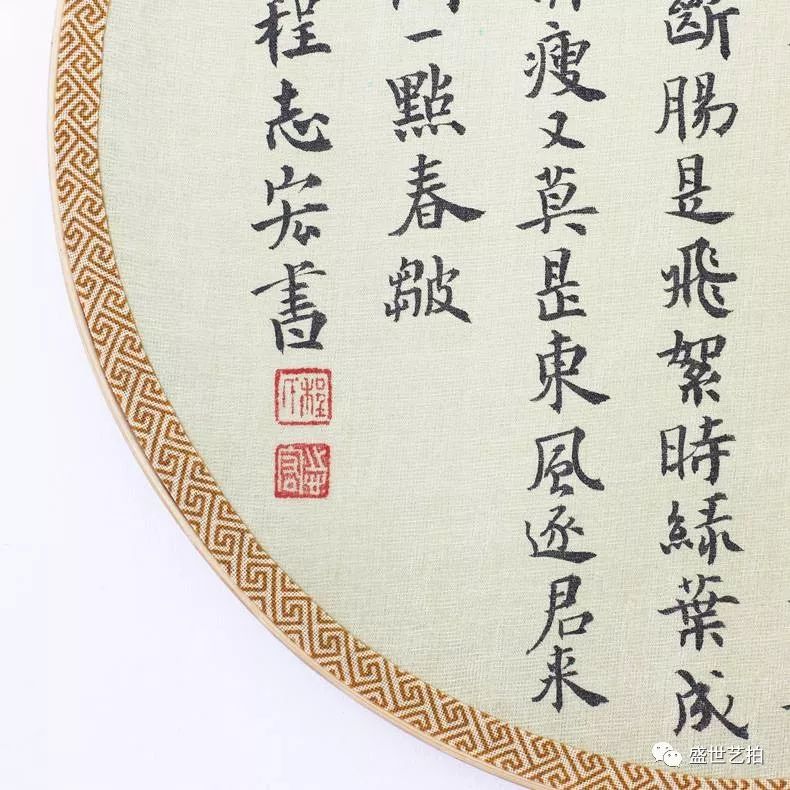 斷腸是飛絮時綠葉成
瘦又莫是東風逐君来
一點春皺
程志宏書
盛世艺拍